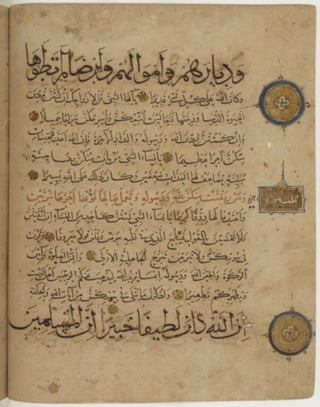 وديارهم واموالهم وارضا لم تطؤها
وكان الله على كل شيء قديرا يا ايها النبي قل لازواجك ان كنتن تردن
الحيوة الدنيا وزينتها فتعالين امتعكن واسرحكن سراحا جميلا
وان كنتن تردن الله ورسوله والدار الاخرة فان الله اعد للمحسنات
منكن اجرا عظيما يا نساء النبي من يات منكن بفاحشة
مبينة يضاعف لها العذاب ضعفين وكان ذلك على الله يسيرا
ومن يقنت منكن لله ورسوله وتعمل صالحا نؤتها اجرها مرتين
واعتدنا لها رزقا كريما يا نساء النبي لستن كاحد من النساء ان اتقيتن
فلا تخضعن بالقول فيطمع الذي في قلبه مرض وقلن قولا معروفا وقرن
في بيوتكن ولا تبرجن تبرج الجاهلية الاولى واقمن الصلوة واتين
الزكوة واطعن الله ورسوله انما يريد الله ليذهب عنكم الرجس اهل البيت
ويطهركم تطهيرا واذكرن ما يتلى في بيوتكن من ايات الله والحكمة
ان الله كان لطيفا خبيرا ان المسلمين